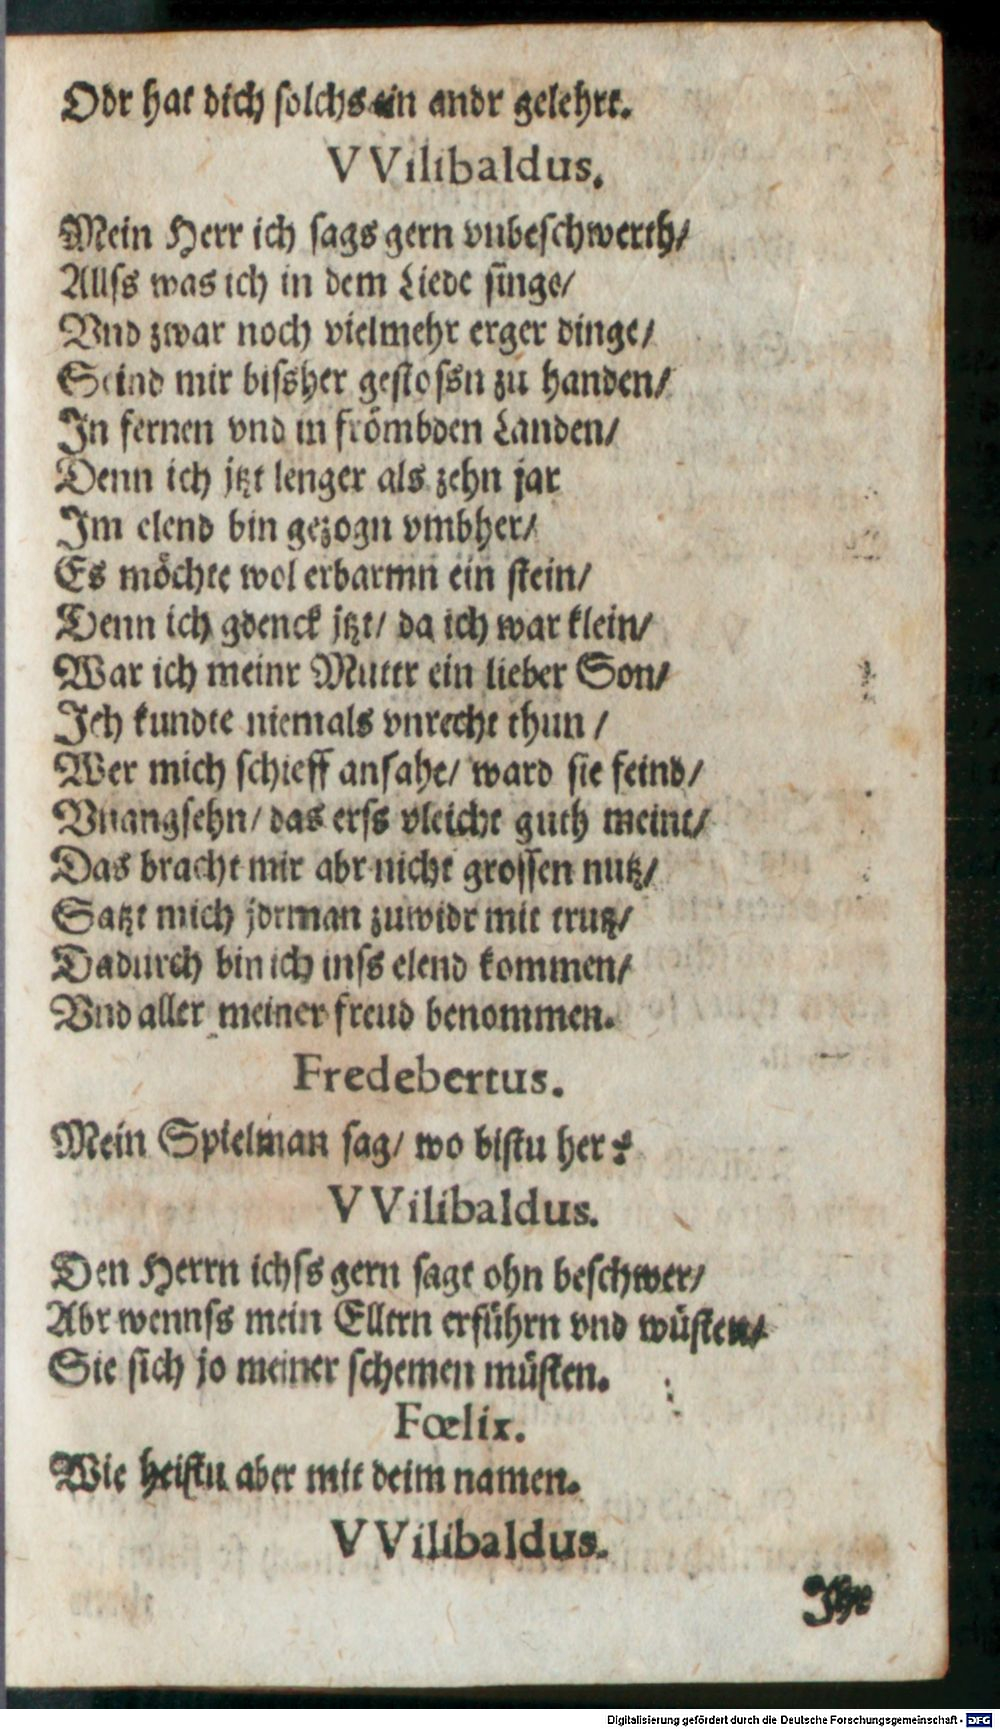 Odr hat dich solchs ein andr gelehrt.
VVilibaldus.
Mein Herr ich sags gern vnbeschwerth/
Allss was ich in dem Liede singe/
Vnd zwar noch vielmehr erger dinge/
Seind mir bissher gestossn zu handen/
In fernen vnd in frömbden Landen/
Denn ich jtzt lenger als zehn jar
Im elend bin gezogn vmbher/
Es möchte wol erbarmn ein stein/
Denn ich gdenck jtzt/ da ich war klein/
War ich meinr Muttr ein lieber Son/
Ich kundte niemals vnrecht thun /
Wer mich schieff ansahe/ ward sie feind/
Vnangsehn/ das erss vleicht guth meint/
Das bracht mir abr nicht grossen nutz/
Satzt mich jdrman zuwidr mit trutz/
Dadurch bin ich inss elend kommen/
Vnd aller meiner freud benommen.
Fredebertus.
Mein Spielman sag/ wo bistu her?
VVilibaldus.
Den Herrn ichss gern sagt ohn beschwer/
Abr wennss mein Elltrn erführn vnd wüsten/
Sie sich jo meiner schemen müsten.
Fœlix.
Wie heistu aber mit deim namen.
VVilibaldus.
Ihr
Digitalisierung gefördert durch die Deutsche Forschungsgemeinschaft - DFG